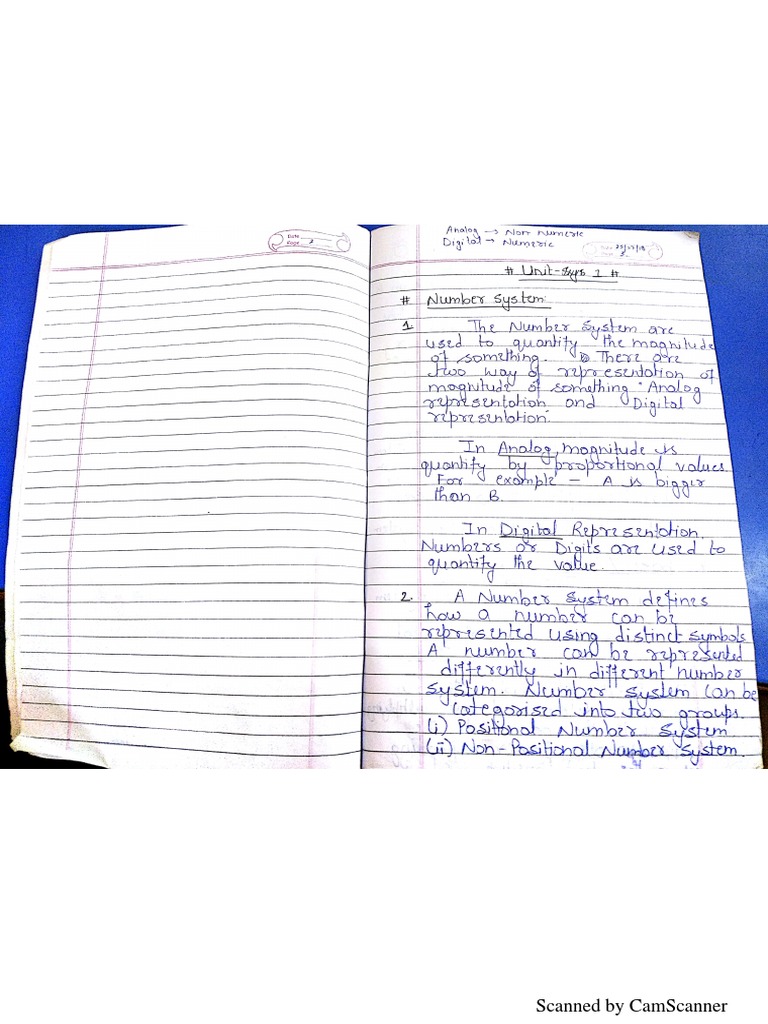 Date
Page 2
Analog → Non Numeric
Digital → Numeric
Date
# Unit- 1 #
# Number System
1. The Number System are
used to quantify the magnitude
of something. There are
two way of representation of
magnitude of something "Analog
representation and Digital
representation"
In Analog, magnitude is
quantify by proportional values
For example - A is bigger
than B.
In Digital Representation
Numbers or Digits are used to
quantify the value.
2. A Number System defines
how a number can be
represented using distinct symbols
A number can be represented
differently in different number
system. Number system can be
categorised into two groups.
(i) Positional Number System
(ii) Non-Positional Number System.
Scanned by CamScanner